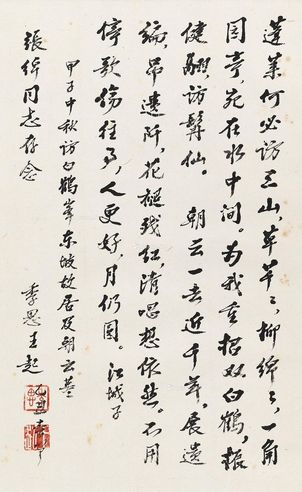 蓬莱何必访三山，草芊々，柳绵々，一角
园亭，宛在水中间。为我重招双白鹤，振
健翮，访髯仙。 朝云一去近千年。展遗
编，吊遗阡，花褪残红，清唱想依然。不用
停歌伤往事，人更好，月仍圆。江城子
甲子中秋访白鹤峯东坡故居及朝云墓
張倬同志存念
季思王起
乙丑